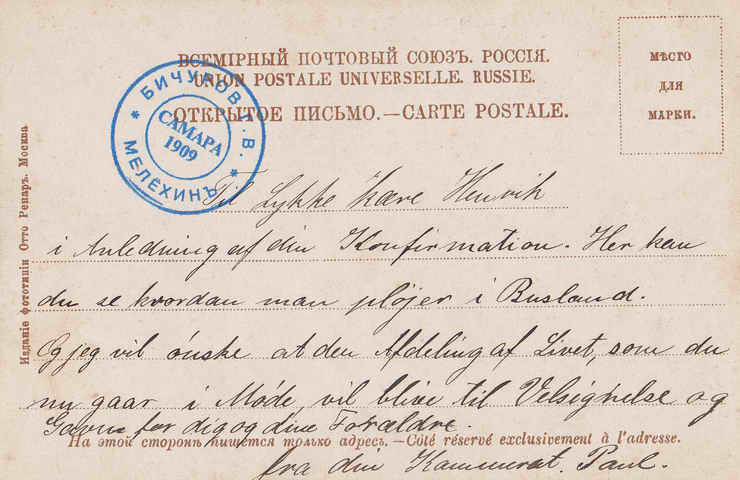 ВСЕМІРНЫЙ ПОЧТОВЫЙ СОЮЗЪ. РОССІЯ.
UNION POSTALE UNIVERSELLE. RUSSIE.
ОТКРЫТОЕ ПИСЬМО.—CARTE POSTALE.
МѢСТО
ДЛЯ
МАРКИ.
* БИЧУРОВ .В. *
САМАРА
1909
МЕЛЁХИНЪ
Изданіе фототипіи Отто Ренаръ. Москва.
Til Lykke Kære Henrik
i Anledning af din Konfirmation. Her kan
du se hvordan man pløjer i Rusland.
Og jeg vil ønske at den Afdeling af Livet, som du
nu gaar i Møde vil blive til Velsignelse og
Gavn for dig og dine Forældre.
На этой сторонѣ пишется только адресъ.—Côté réservé exclusivement à l'adresse.
fra din Kammerat. Paul.